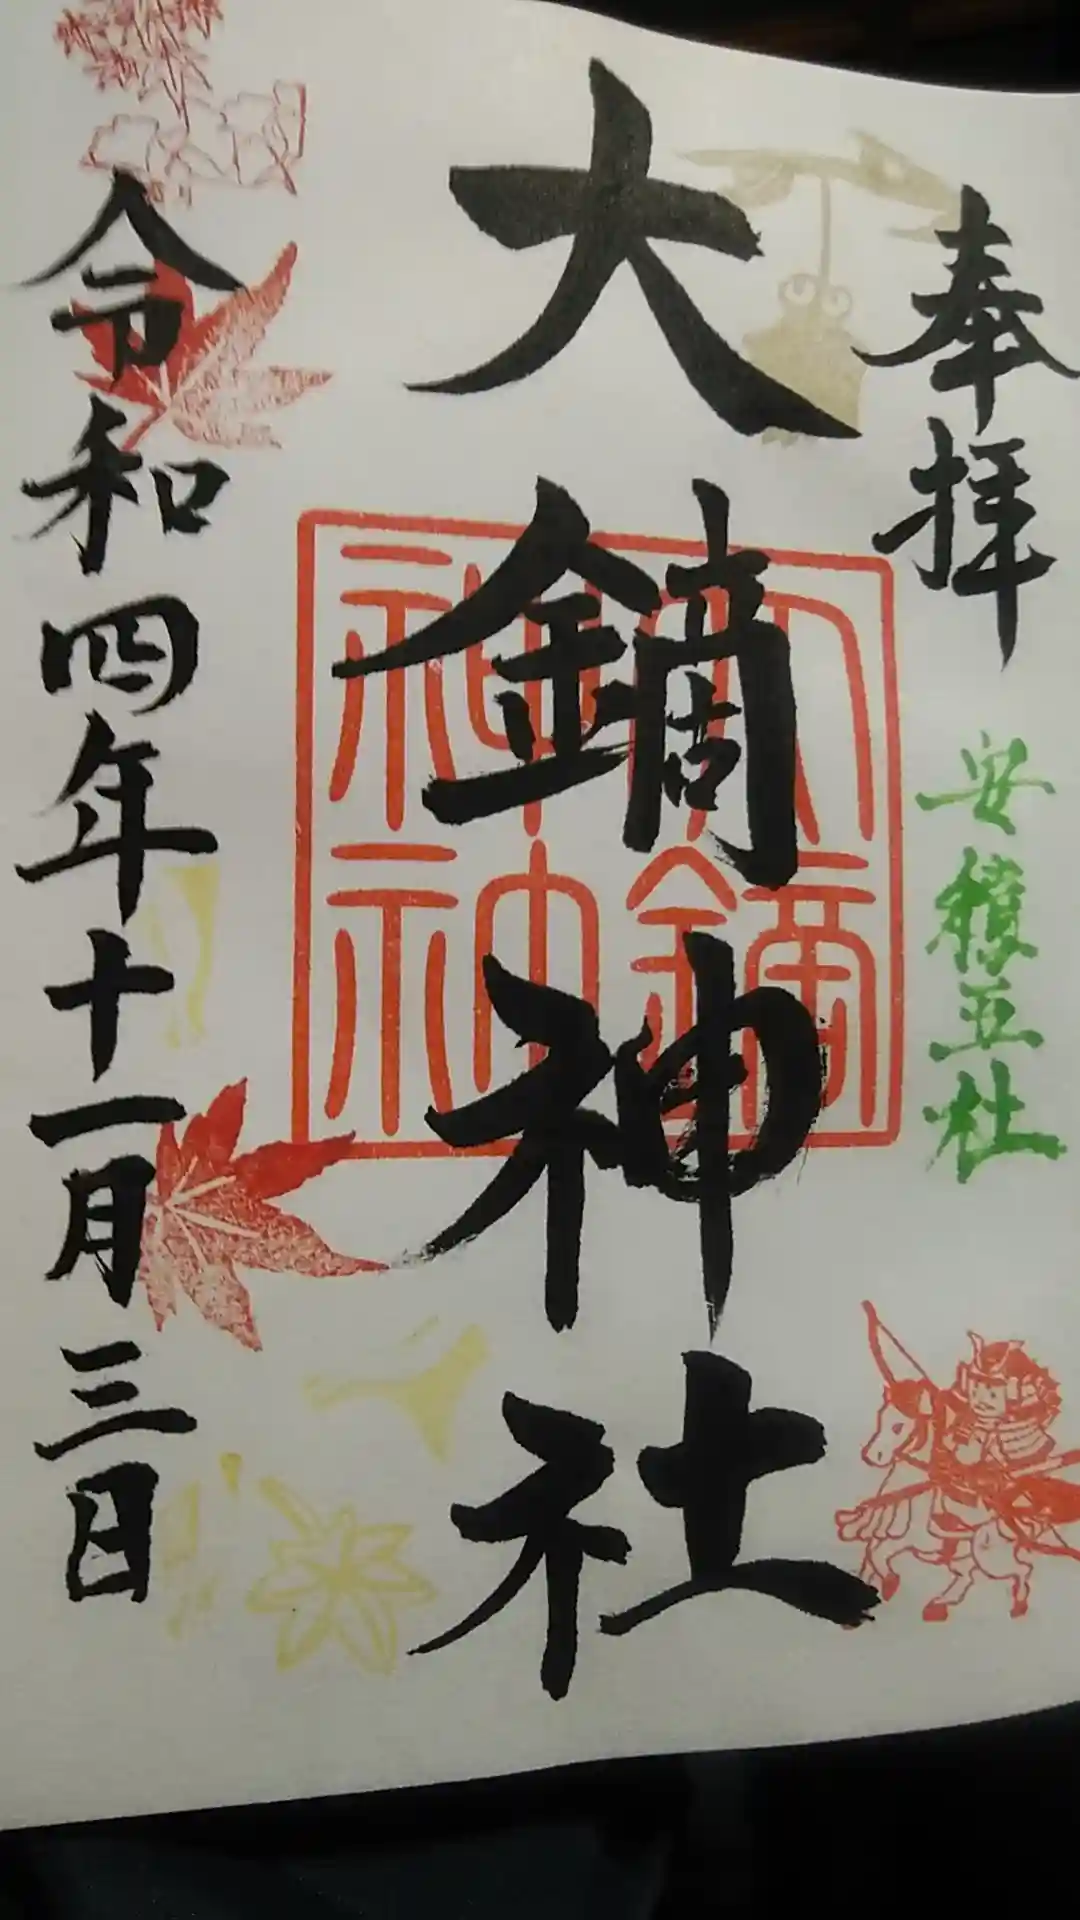 奉拝
安積五社
大鏑神社
大鏑
神社
令和四年十一月三日